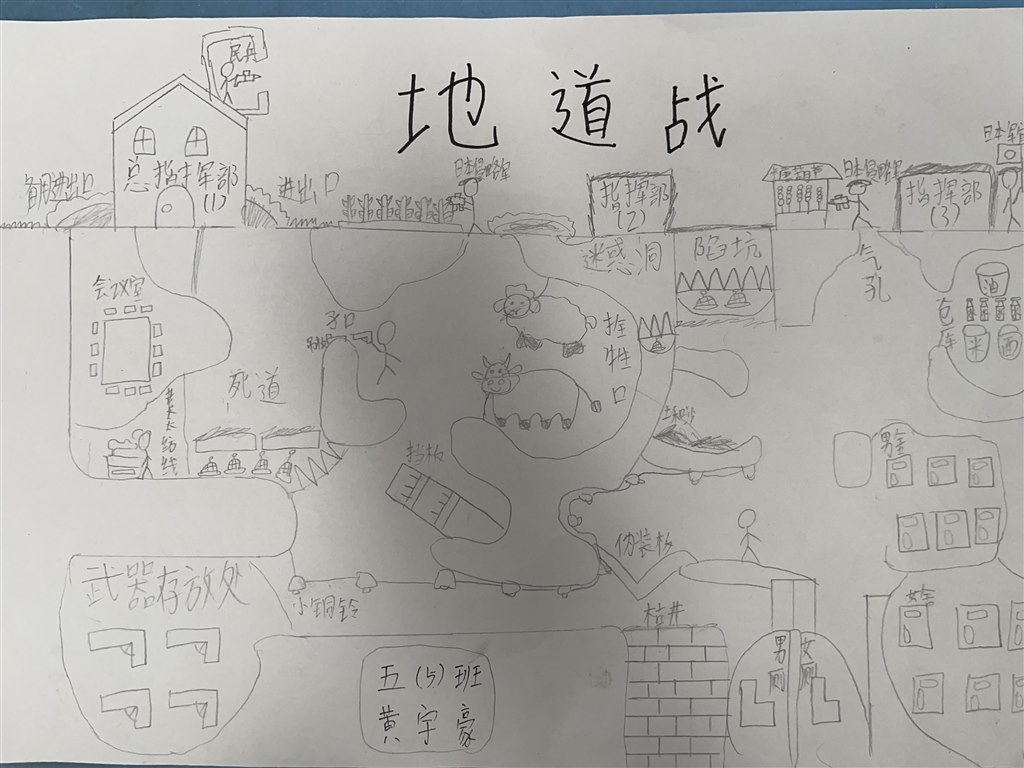 地道战
民兵
日本
日本侵略军
日本侵略军
备用进出口
总指挥部
(1)
进出口
指挥部
(2)
指挥部
(3)
迷惑洞
陷坑
气孔
会议室
仓库
油
米
面
子口
拴牲口
死道
挡板
男室
伪装板
武器存放处
小铜铃
枯井
男厕
女厕
五(5)班
黄宇豪